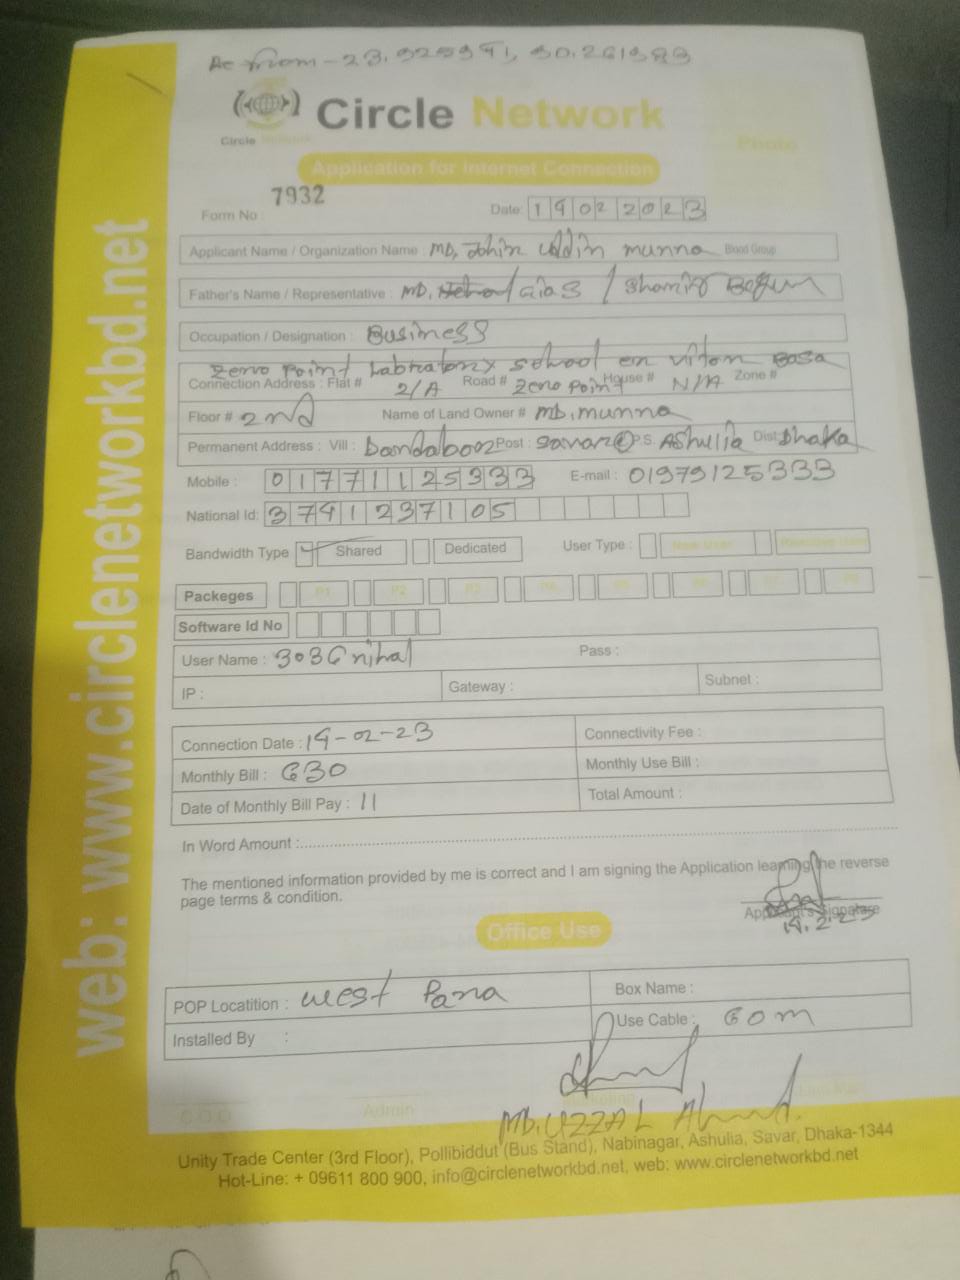 Ac from - 23.925991, 90.261983
Circle Network
Circle Network
Photo
Application for Internet Connection
Form No : 7932
Date: 19 02 2023
Applicant Name / Organization Name : MD, uddin munna Blood Group
Father's Name / Representative : MD. Gias / Begum
Occupation / Designation : Business
Zero Point Labratory school en Basa
Connection Address : Flat # 2/A Road # Zero Point House # N/A Zone #
Floor # 2nd Name of Land Owner # MD, munna
Permanent Address : Vill : Post : Savar P.S. Ashulia Dist: Dhaka
Mobile : 01771125333 E-mail : 01979125333
National Id: 3741237105
Bandwidth Type Shared Dedicated User Type :
Packeges P1 P2 P3 P4 P5 P6 P7 P8
Software Id No
User Name : Pass :
IP : Gateway : Subnet :
Connection Date : 19-02-23 Connectivity Fee :
Monthly Bill : 630 Monthly Use Bill :
Date of Monthly Bill Pay : 11 Total Amount :
In Word Amount :
The mentioned information provided by me is correct and I am signing the Application learning the reverse
page terms & condition.
Applicant's Signature
19.2.23
Office Use
POP Locatition : West Para Box Name :
Installed By : Use Cable : 60m
C.O.O Admin Marketing
MD. UZZAL Ahmed.
Unity Trade Center (3rd Floor), Pollibiddut (Bus Stand), Nabinagar, Ashulia, Savar, Dhaka-1344
Hot-Line: + 09611 800 900, info@circlenetworkbd.net, web: www.circlenetworkbd.net
web: www.circlenetworkbd.net